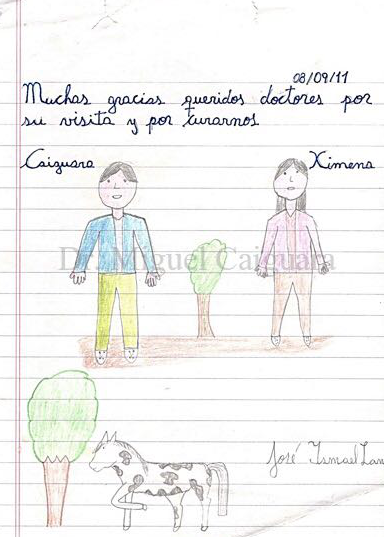 08/09/11
Muchas gracias queridos doctores por
su visita y por curarnos
Caiguara
Ximena
Dr. Miguel Caiguara
José Ismael Lan